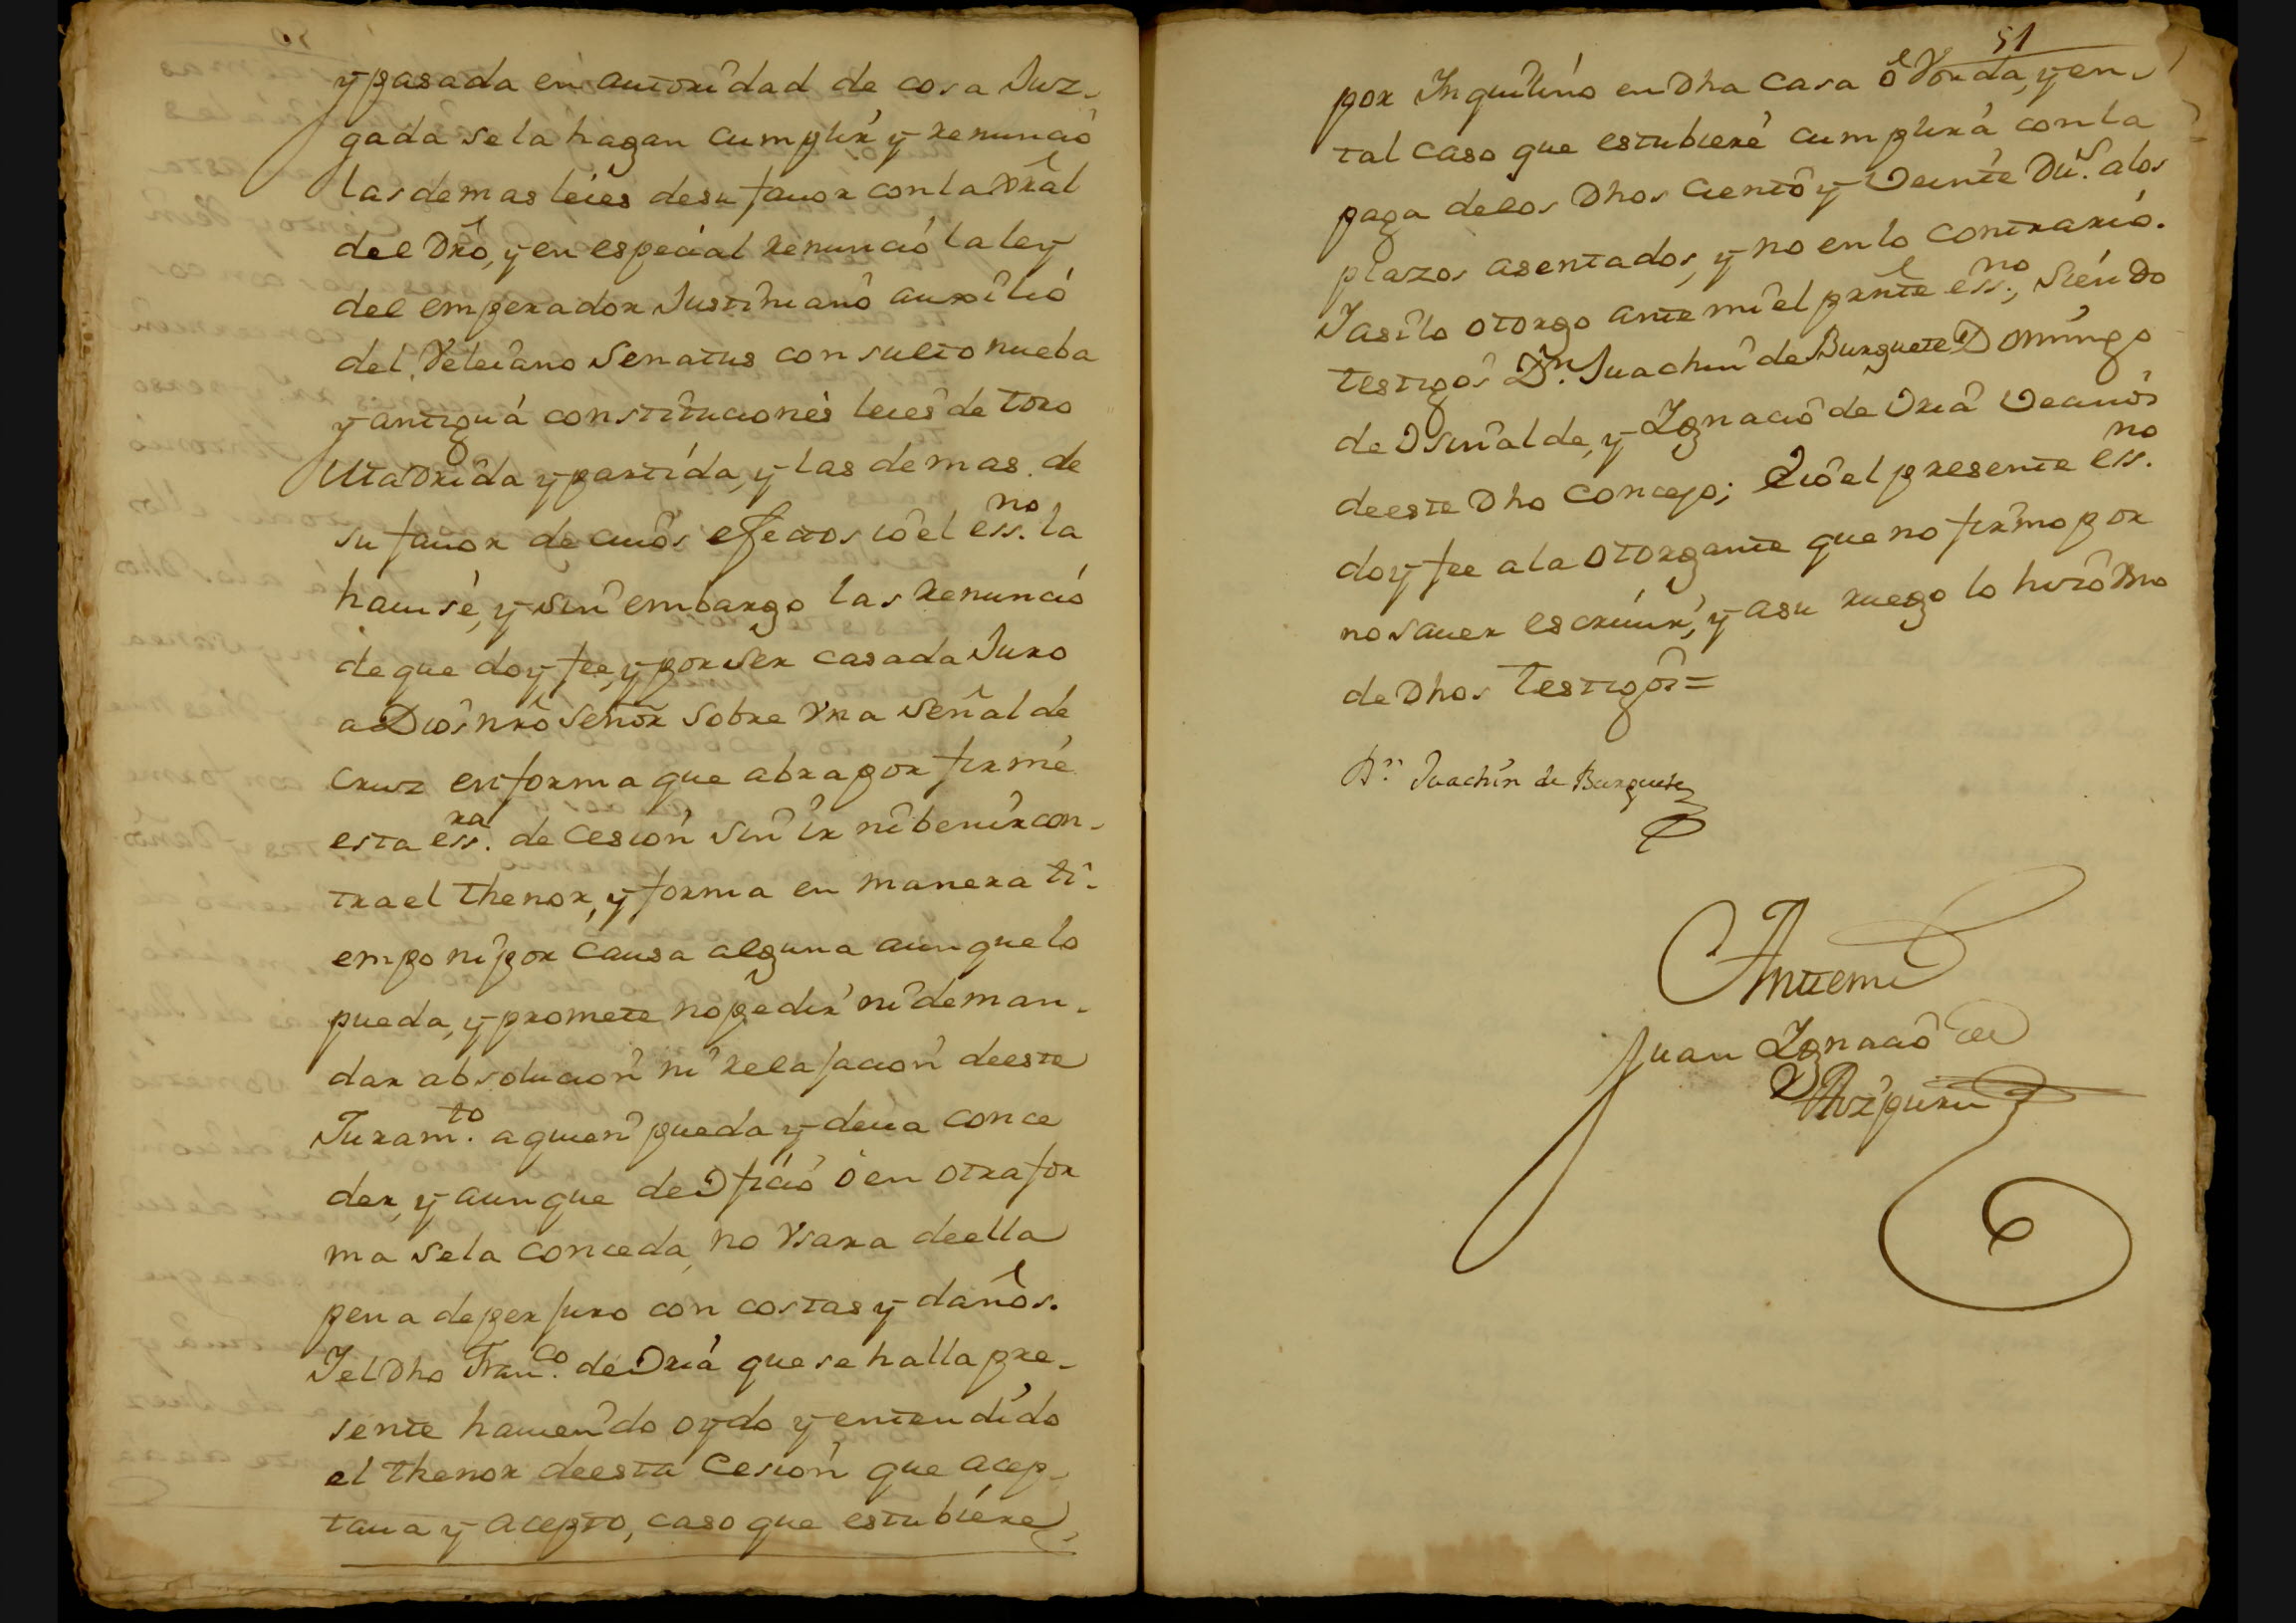 y pasada en autoridad de cosa Juz-
gada se la hagan cumplir y renunció
las demas leies de su fauor con la Grâl
del Dro, y en especial renunció la ley
del emperador Justiniano auxilió
del Veleiano Senatus consulto nueba
y antiguá constituciones leies de toro
Madrid y partida, y las demas de
su fauor de cuios efectos io el ess.no la
hauisé, y sin embargo las renunció
de que doy fee, y por ser casada Juro
a Dios nrô Señor sobre Vna señal de
cruz en forma que abra por firmé
esta ess.ra de cesion sin ir ni benir con-
tra el thenor, y forma en manera ti-
empo ni por causa alguna aunque lo
pueda, y promete no pedir ni deman-
dar absolucion ni relajacion de este
Juram.to a quien pueda y deua conce
der, y aunque de Oficio ó en otra for
ma se la conceda, no Vsara de ella
pena de perjuro con costas y daños.
I el Dho Fran.co de Oriá que se halla pre-
sente hauiendo oydo y entendido
el thenor de esta Cesion que acep-
taua y acepto, caso que estubiere
51
por Inquilino en Dha Casa ô, y en
tal caso que estubieré cumplirá con la
paga de los Dhos ciento y Veinte Du.s a los
plazos asentados, y no en lo contrario.
I asi lo otorgo ante mi el prnte ess.no, siendo
testigos D.n Juachin de Burguete Domingo
de Osinalde, y Ignacio de Oriá Vecinos
de este Dho Concejo; E io el presente ess.no
doy fee a la otorgante que no firmo por
no sauer escriuir, y a su ruego lo hizo Vno
de Dhos testigos =
D.n Juachin de Burguete
Ante mi
Juan Ignacio de